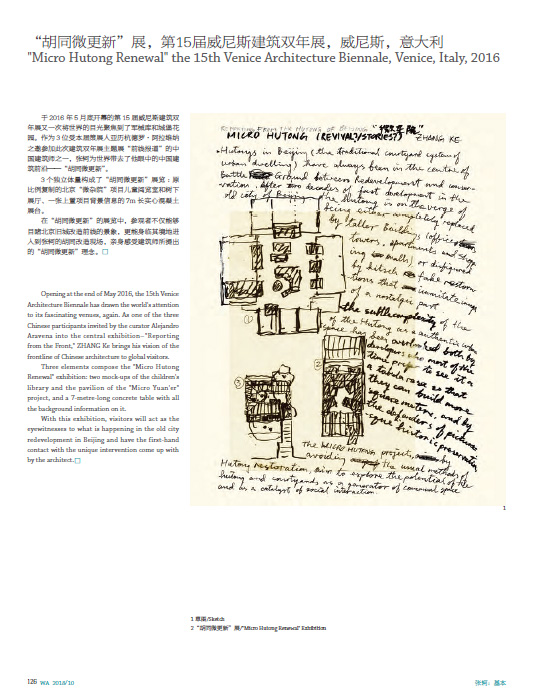 “胡同微更新”展，第15届威尼斯建筑双年展，威尼斯，意大利
"Micro Hutong Renewal" the 15th Venice Architecture Biennale, Venice, Italy, 2016
于 2016 年 5 月底开幕的第 15 届威尼斯建筑双
年展又一次将世界的目光聚焦到了军械库和城堡花
园。作为 3 位受本届策展人亚历杭德罗·阿拉维纳
之邀参加此次建筑双年展主题展“前线报道”的中
国建筑师之一，张轲为世界带去了他眼中的中国建
筑前沿——“胡同微更新”。
3 个独立体量构成了“胡同微更新”展览：原
比例复制的北京“微杂院”项目儿童阅览室和树下
展厅、一张上置项目背景信息的7m 长实心混凝土
展台。
在“胡同微更新”的展览中，参观者不仅能够
目睹北京旧城改造前线的景象，更能身临其境地进
入到张轲的胡同改造现场，亲身感受建筑师所提出
的“胡同微更新”理念。□
Opening at the end of May 2016, the 15th Venice
Architecture Biennale has drawn the world's attention
to its fascinating venues, again. As one of the three
Chinese participants invited by the curator Alejandro
Aravena into the central exhibition–"Reporting
from the Front," ZHANG Ke brings his vision of the
frontline of Chinese architecture to global visitors.
Three elements compose the "Micro Hutong
Renewal" exhibition: two mock-ups of the children's
library and the pavilion of the "Micro Yuan'er"
project, and a 7-metre-long concrete table with all
the background information on it.
With this exhibition, visitors will act as the
eyewitnesses to what is happening in the old city
redevelopment in Beijing and have the first-hand
contact with the unique intervention come up with
by the architect.□
REPORTING FROM THE HUTONG OF BEIJING
MICRO HUTONG (REVIVAL?/STORIES?) ZHANG KE
Hutongs in Beijing (the traditional courtyard system of
urban dwelling) have always been in the center of
Battle Ground between Redevelopment and conser-
vation. After two decades of fast development in the
old city of Beijing, the hutong is on the verge of
being either completely replaced
by taller buildings (office
towers, apartments and shopp
ing malls) or disfigured
by kitsch fake restora
tions imitating
of a nostalgic past.
the subtle complexity of the
of the Hutong as a authentic urban
space has been overlooked both by
designers who most of the
time prefer to see it a
a tabula rasa so that
they can build more
square meters, and by
the defenders of pictures
que historic preservation
The MICRO HUTONG projects,
avoiding the usual methods of
Hutong restoration, aim to explore the potential of the
hutong and courtyards as a generator of communal space
and as a catalyst of social interaction.
1
2
3
1
1 草图/Sketch
2 “胡同微更新”展/"Micro Hutong Renewal" Exhibition
126 WA 2018/10
张轲：基本